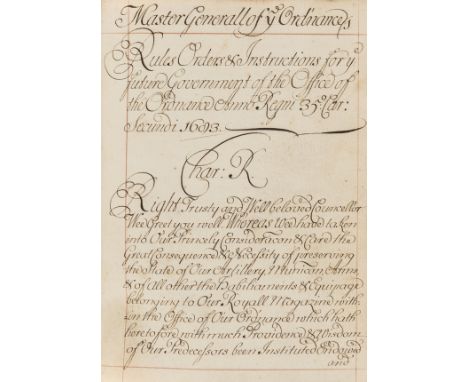 Master Generall of yᵉ Ordnance's
Rules Orders & Instructions for yᵉ
future Government of the Office of
the Ordnance Anno Regni 35º Car:
Secundi 1683.
Char: R.
Right Trusty and Well beloved Councellor
Wee Greet you well Whereas Wee have taken
into Our Princely Consideracon & Care the
Great Consequence & Necessity of preserving
the State of Our Artillery Municon Arms,
& of all other the Habiliaments & Equipage
belonging to Our Royall Magazine with
=in the Office of Our Ordnance which hath
heretofore with much Providence & Wisdom
of Our Predecessors been Instituted Endowed
and